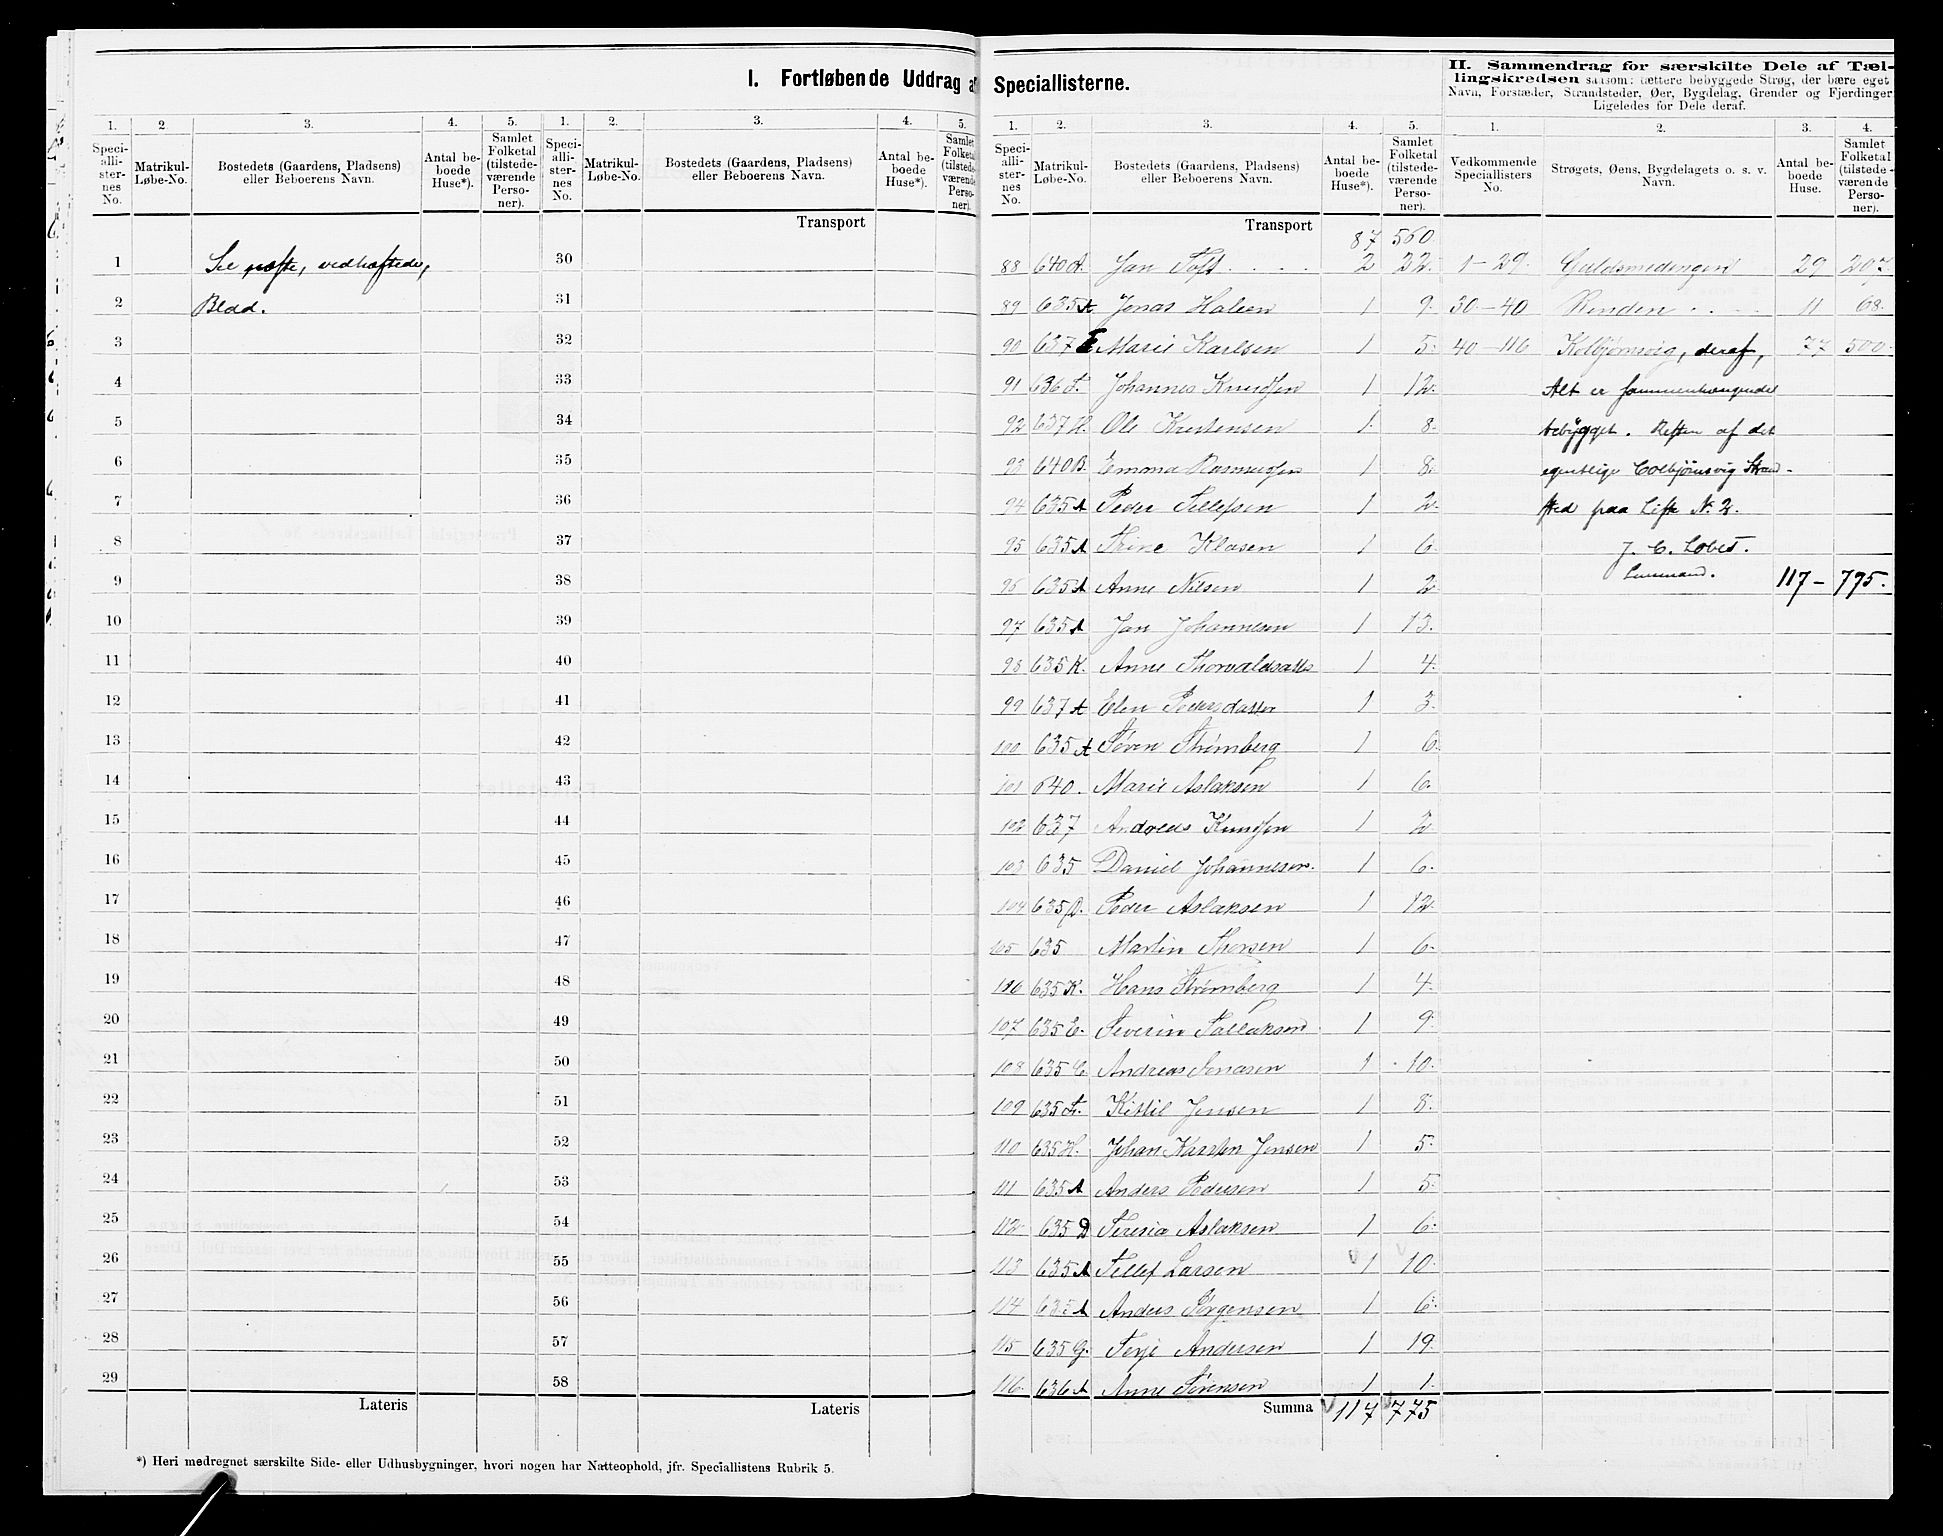 I. Fortløbende Uddrag af Speciallisterne.
1. 2 3. 4. 5. 1. 2. 3. 4. 5.
Speciallisternes No. Matrikul-Løbe-No. Bostedets (Gaardens, Pladsens) eller Beboerens Navn. Antal beboede Huse*). Samlet Folketal (tilstedeværende Personer). Speciallisternes No. Matrikul-Løbe-No. Bostedets (Gaardens, Pladsens) eller Beboerens Navn. Antal beboede Huse*). Samlet Folketal (tilstedeværende Personer).
Transport
1 See næste, vedhæftede, 30
2 Blad. 31
3 32
4 33
5 34
6 35
7 36
8 37
9 38
10 39
11 40
12 41
13 42
14 43
15 44
16 45
17 46
18 47
19 48
20 49
21 50
22 51
23 52
24 53
25 54
26 55
27 56
28 57
29 58
Lateris Lateris
*) Heri medregnet særskilte Side- eller Udhusbygninger, hvori nogen har Natteophold, jfr. Speciallistens Rubrik 5.
1. 2. 3. 4. 5.
Speciallisternes No. Matrikul-Løbe-No. Bostedets (Gaardens, Pladsens) eller Beboerens Navn. Antal beboede Huse*). Samlet Folketal (tilstedeværende Personer).
Transport 87 560.
88 640 A. Jan Toft 2 22.
89 635 A Jonas Halsen 1 9.
90 637 E Marie Karlsen 1 5.
91 636 F. Johannes Knudsen 1 12.
92 637 H. Ole Kristensen 1 8.
93 640 B. Emma Rasmussen 1 8.
94 635 A Peder Tellefsen 1 2.
95 635 A Trine Klasen 1 6
95 635 A Anne Nilsen 1 2
97 635 A Jan Johannesen 1 13.
98 635 K. Anne Thorvaldsatter 1 4.
99 637 A Elen Pedersdatter 1 3.
100 635 A Søren Strømberg 1 6.
101 640. Marie Aslaksen 1 6.
102 637 Andreas Knudsen 1 2
103 635 Daniel Johannesen. 1 6.
104 635 D. Peder Aslaksen 1 12.
105 635 Martin Thorsen 1 6.
106 635 K. Hans Strømberg 1 4.
107 635 C. Severin Tallaksen 1 9.
108 635 C. Andreas Jonasen 1 10.
109 635 F. Kittil Jensen 1 8.
110 635 H. Johan Karsten Jensen 1 5.
111 635 A Anders Pedersen 1 5.
112 635 D Teresia Aslaksen 1 6.
113 635 A Tellef Larsen 1 10.
114 635 A Anders Jørgensen 1 6.
115 635 G. Terje Andersen 1 19.
116. 636 A Anne Sørensen 1 1.
Summa 117 775
II. Sammendrag for særskilte Dele af Tællingskredsen saasom: tættere bebyggede Strøg, der bære eget
Navn, Forstæder, Strandsteder, Øer, Bygdelag, Grender og Fjerdinger
Ligeledes for Dele deraf.
1. 2. 3. 4.
Vedkommende Speciallisters No. Strøgets, Øens, Bygdelagets o. s. v. Navn. Antal beboede Huse. Samlet Folketal (tilstedeværende Personer).
1 - 29. Guldsmedengen 29 207.
30 - 40 Rinden 11 68.
40 - 116 Kolbjørnsvig, deraf, 77 500.
Alt er sammenhængende
bebygget. Resten af det
egentlige Colbjørnsvig Strand-
sted paa Liste No. 2.
J. C. Lobes.
Lensmand. 117 - 795.